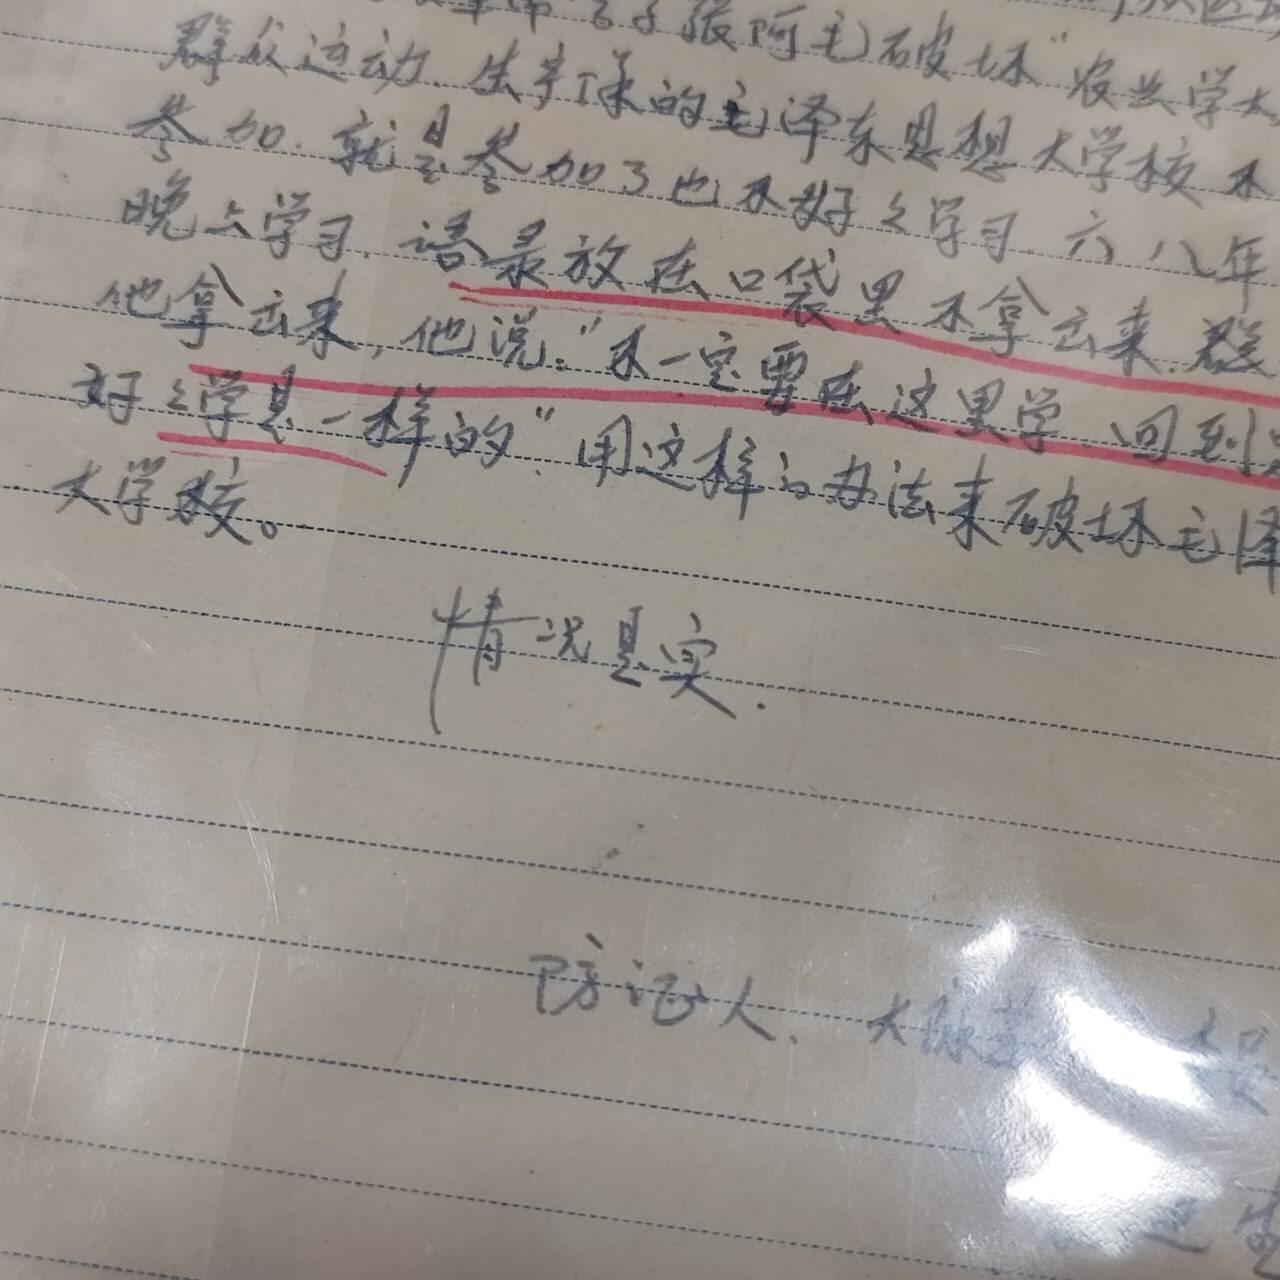 张阿毛破坏“农业学大
群众运动.生产队的毛泽东思想大学校不
参加.就是参加了也不好々学习.六八年
晚上学习.语录放在口袋里不拿出来.群
他拿出来,他说:“不一定要在这里学 回到
好々学是一样的”.用这样的办法来破坏毛泽
大学校。
情况是实.
证人.